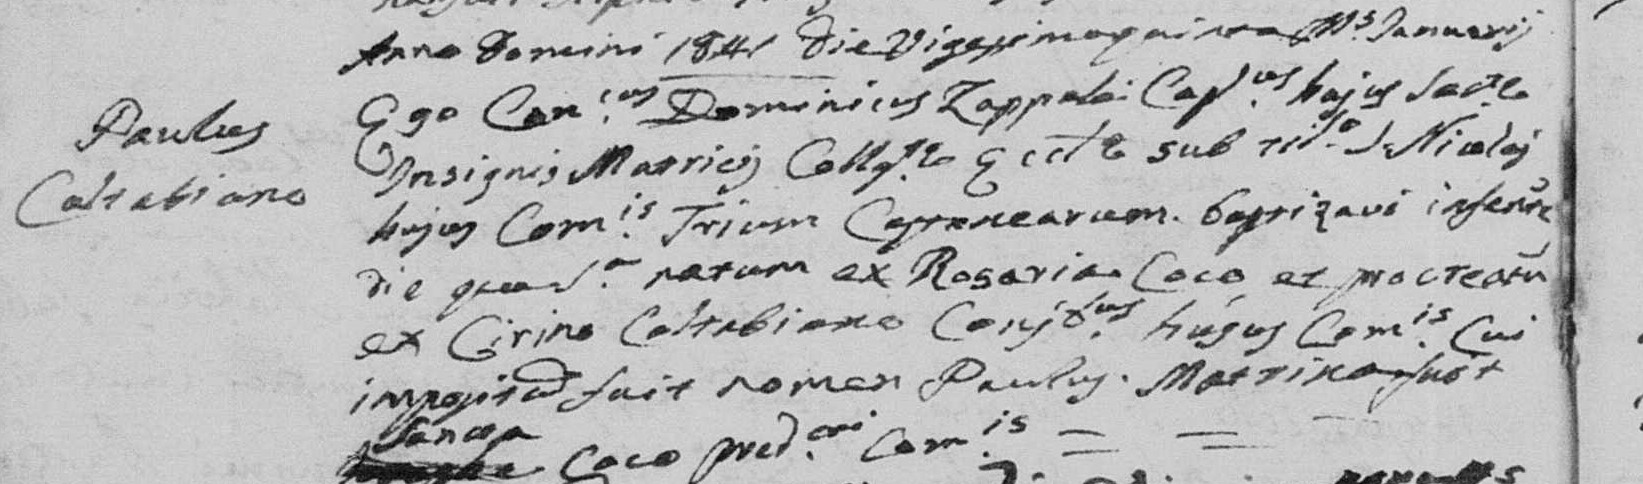 Paulus
Caltabiano
Anno Domini 1841 die Vigesimaquinta Ms. Januarij
Ego Can.cus Dominicus Zappalà Cap.us hujus Sac.
Insignis Matricis Coll. Eccl. sub tit.o S. Nicolai
hujus Com.is Trium Castanearum baptizavi infantem
die quad.a natum ex Rosaria Coco et procreatum
ex Cirino Caltabiano Conj.bus hujus Com.is Cui
impositum fuit nomen Paulus. Matrina fuit
Sancta
Coco pred.cti Com.is = =